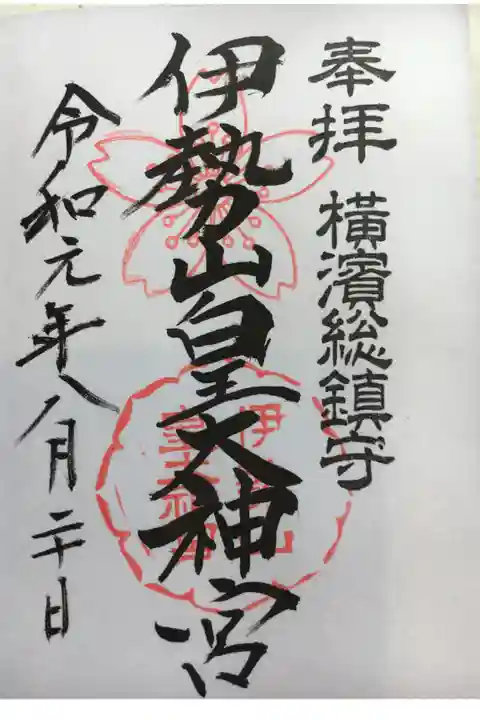 奉拝 横濱総鎮守
伊勢山皇大神宮
令和元年八月二十日
伊勢山
皇大神宮